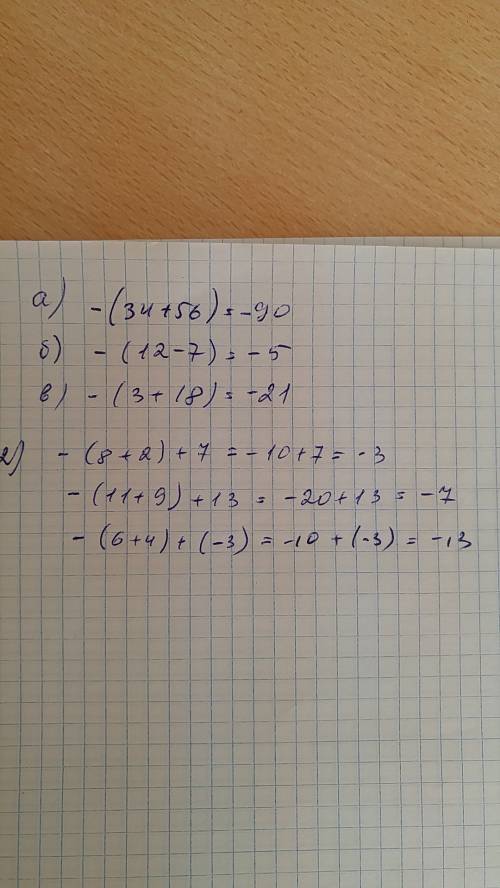 а) -(34+56)=-90
б) -(12-7)=-5
в) -(3+18)=-21
2) -(8+2)+7=-10+7=-3
-(11+9)+13=-20+13=-7
-(6+4)+(-3)=-10+(-3)=-13